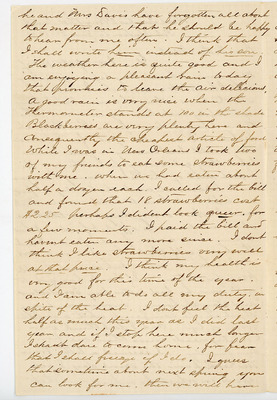 he and Mrs Davis have forgotten all about
that matter and that he should be happy
to hear from me often. I think that
I shall write him instead of his son
The weather here is quite good and I
am enjoying a pleasant rain to day
that promises to leave the air delicious.
A good rain is very nice when the
thermometer stands at 100 in the shade
Blackberries are very plenty here and
consequently the cheapest article of food
While I was in New Orleans I took two
of my friends to eat some strawberries
with me. When we had eaten about
half a dozen each I called for the bill
and found that 18 strawberries cost
$2.25 perhaps I didnt look queer, for
a few moments. I paid the bill and
havent eaten any more since. I dont
think I like strawberries very well
at that price. I think my health is
very good for this time of the year.
and I am able to do all my duty, in
spite of the heat. I dont feel the heat
half as much this year as I did last
year and if I stop here much longer
I shant dare to come home, for fear
that I shall freeze if I do. I guess
that sometime about next spring you
can look for me. then we will have